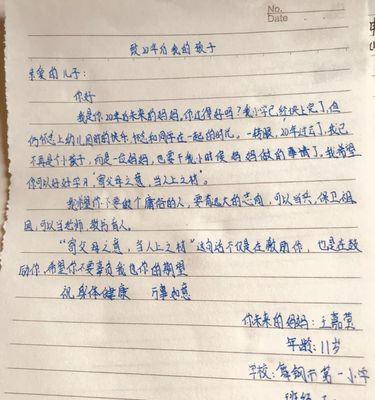 No.
Date
致20年后我的孩子
亲爱的儿子：
你好
我是你20年后未来的妈妈，你过得好吗？我小学已经快上完了，但
们怀念上幼儿园时的快乐，怀念和同学在一起的时光。一转眼，20年过去了，我已
不再是个小孩子，而是一位妈妈，也要干我小时候妈妈做的事情了。我希望
你可以好好学习"寄父母之意，当人上之材"。
我希望你不要做个庸俗的人，要有远大的志向，可以当兵，保卫祖
国，可以当老师，教书育人。
"寄父母之意，当人上之材"这句话不仅是在教用你，也是在鼓
励你，希望你不要辜负我对你的期望
祝身体健康 万事如意
你未来的妈妈：王嘉
年龄：11岁
学校：舞钢市第一小学
班级